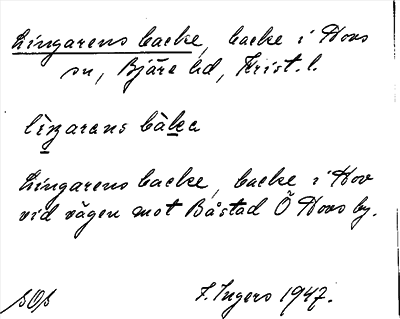 Lingarens backe, backe i Hovs
sn, Bjäre hd, Krist. l.
lìŋarens bàka
Lingarens backe, backe i Hov
vid vägen mot Båstad Ö Hovs by.
I. Ingers 1947.